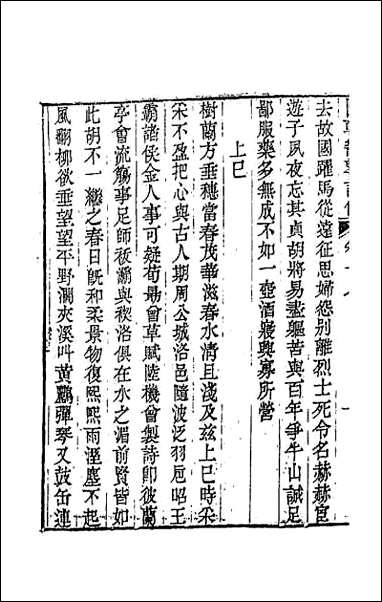 去故國躍馬從遠征思婦怨别離烈士死令名赫赫宦
遊子夙夜忘其貞胡將易盡軀苦與百年爭牛山誠足
鄙服藥多無成不如一壺酒寢興寡所營
上巳
樹蘭方垂穗當春茂華滋春水清且淺及兹上巳時采
采不盈把心與古人期周公城洛邑隨波泛羽卮昭王
霸諸侯金人事可疑荀勗會草賦陸機會製詩即彼蘭
亭會流觴事足師祓灞與禊洛俱在水之湄前賢皆如
此胡不一繼之春日旣和柔景物復熙熙雨溼塵不起
風翻柳欲垂望望平野濶夾溪叫黃鸝彈琴又鼓缶連